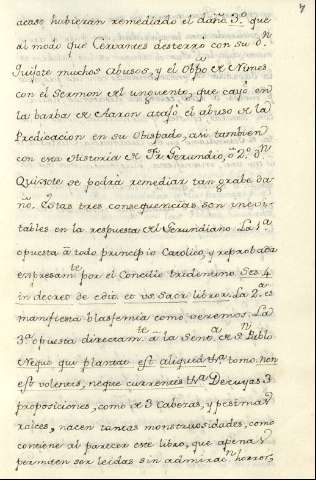 7
acaso hubieran remediado el daño 3.º que
al modo que Cervantes desterró con su Dn
Quijote muchos abusos, y el Obpo de Nimes
con el Sermon del unguente, que cayó en
la barba de Aaron atajó el abuso de la
Predicacion en su Obispado, asi tambien
con esta Historia de Fr. Gerundio, ó 2.º Dn
Quixote se podrá remediar tan grabe da
ño. Estas tres consequencias son inevi-
tables en la respuesta del Gerundiano. La 1.ª
opuesta á todo principio Catolico, y reprobada
expresamte por el Concilio tridentino Ses. 4
in decreto de edit. et us. Sacr. libror. La 2.ª es
manifiesta blasfemia como veremos. La
3.ª opuesta directamte a la Sena de Sn Pablo
Neque qui plantat est aliquid tha tomo. non
est volentis, neque currentis tha De cuyas 3
proposiciones, como de 3 Cabezas, y pesimas
raices, nacen tantas monstruosidades, como
contiene al parecer este libro, que apenas
permiten ser leidas sin admiracn horror,